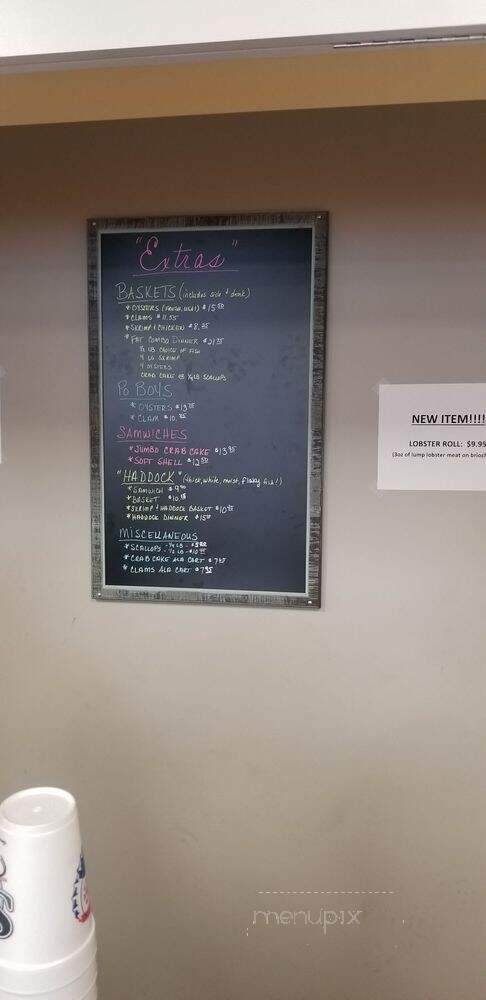 "Extras"
BASKETS (includes side & drink)
* OYSTERS
* CLAMS $11.55
* SHRIMP & CHICKEN $8.35
* FAT COMBO DINNER $21.35
½ LB CHOICE OF FISH
¼ LB SHRIMP
4 OYSTERS
CRAB CAKE OR ¼ LB SCALLOPS
PO BOYS
* OYSTERS
* CLAM
SAMWICHES
* JUMBO CRAB CAKE $13.95
* SOFT SHELL $12.50
"HADDOCK" (thick, white, moist, flaky fish!)
* SAMWICH
* BASKET
* SHRIMP & HADDOCK BASKET
* HADDOCK DINNER
MISCELLANEOUS
* SCALLOPS - ¼ LB -
½ LB -
* CRAB CAKE ALA CART $7.95
* CLAMS ALA CART $7.95
NEW ITEM!!!!
LOBSTER ROLL: $9.95
(3oz of lump lobster meat on
menupix